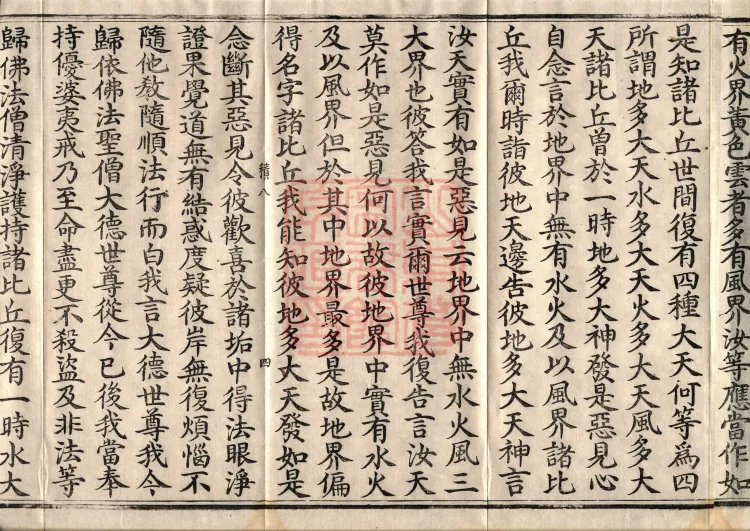 有火界黃色雲者多有風界汝等應當作如
是知諸比丘世間復有四種大天何等爲四
所謂地多大天水多大天火多大天風多大
天諸比丘曾於一時地多大神發是惡見心
自念言於地界中無有水火及以風界諸比
丘我爾時詣彼地天邊告彼地多大天神言
汝天實有如是惡見云地界中無水火風三
大界也彼答我言實爾世尊我復告言汝天
莫作如是惡見何以故彼地界中實有水火
及以風界但於其中地界最多是故地界偏
得名字諸比丘我能知彼地多大天發如是
積八
四
念斷其惡見令彼歡喜於諸垢中得法眼淨
證果覺道無有結惑度疑彼岸無復煩惱不
隨他教隨順法行而白我言大德世尊我今
歸依佛法聖僧大德世尊從今已後我當奉
持優婆夷戒乃至命盡更不殺盜及非法等
歸佛法僧清淨護持諸比丘復有一時水大